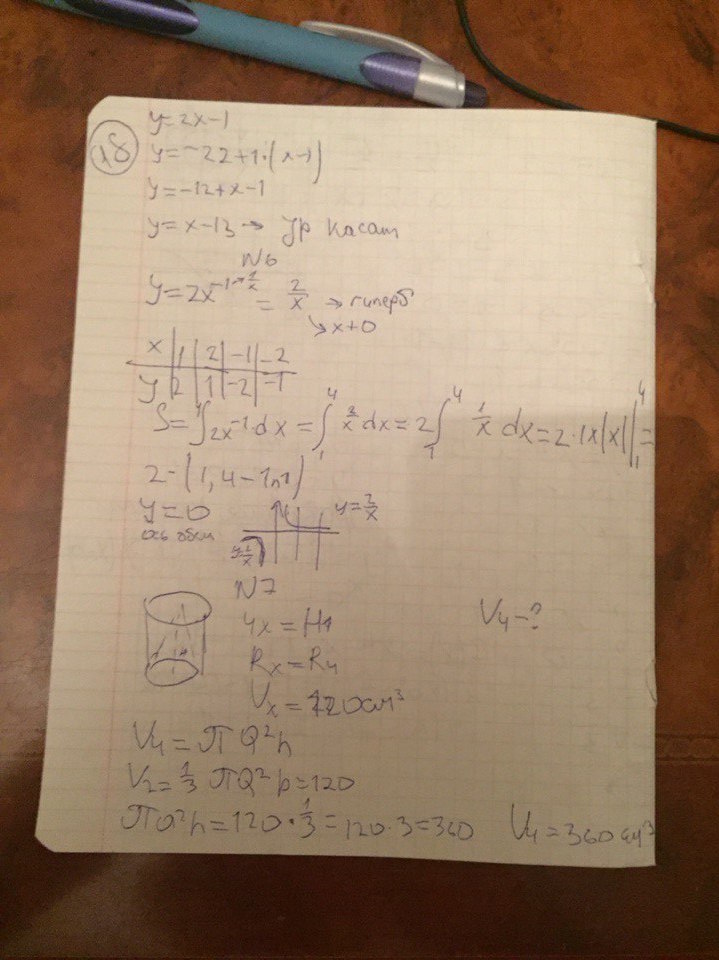 18
y=2x-1
y=-22+1·(x-1)
y=-12+x-1
y=x-13 → ур касат
N6
y=2x^-1→1/x = 2/x → гиперб
↘ x≠0
x | 1 | 2 | -1 | -2
y | 2 | 1 | -2 | -1
S=∫2x^-1 dx = ∫ 2/x dx = 2∫ 1/x dx = 2·1x|x| | =
2-(1,4-1n1)
y=0 y=2/x
ось абсц
N7
4x=H1 V4-?
Rx=R4
Vx=120см³
V4=πQ²h
V2=1/3 πQ²h=120
πQ²h=120·1/3=120·3=360 V4=360см³